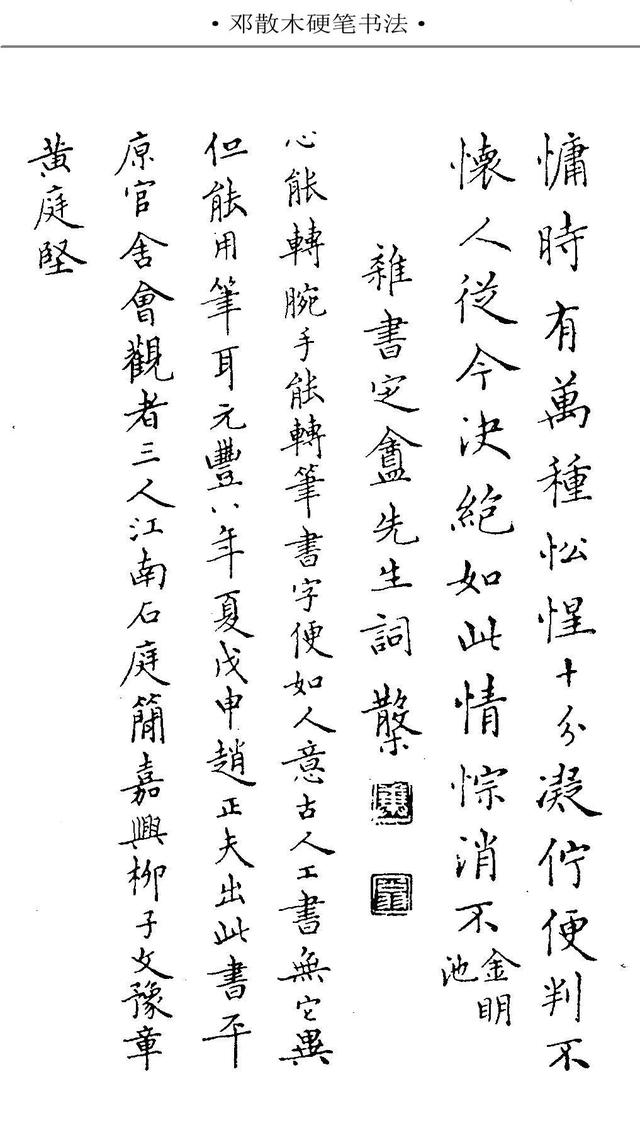 ·邓散木硬笔书法·
慵時有萬種忪惺十分凝佇便判不
懷人從今決絕如此情悰消不金明池
雜書定盦先生詞 散木
心能轉腕手能轉筆書字便如人意古人工書無它異
但能用筆耳元豐八年夏戊申趙正夫出此書平
原官舍會觀者三人江南石庭簡嘉興柳子文豫章
黃庭堅